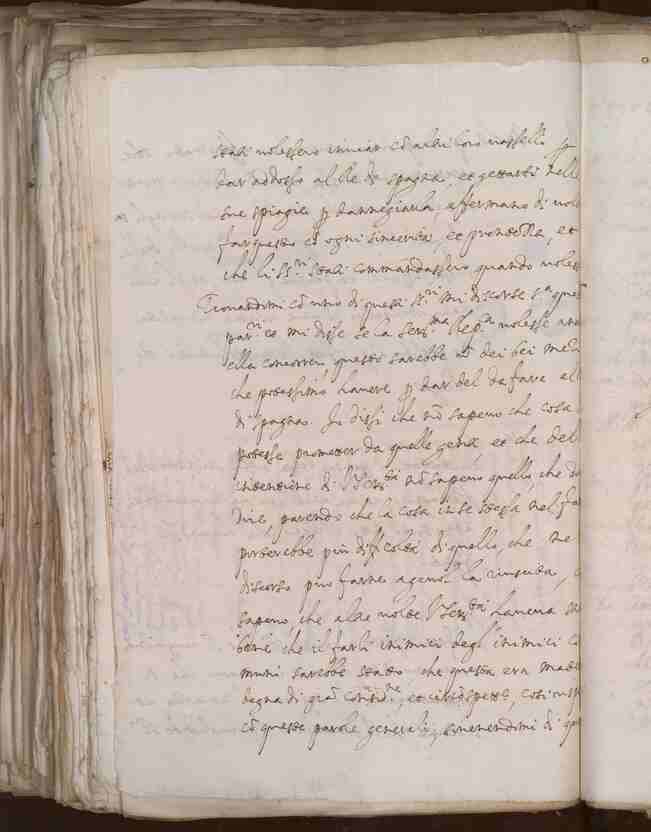 stati volessero inviar cõ altri loro vasselli p
dar adosso al Re di Spagna, et gettarsi nell
sue spiagie p dannegiarla, affermano di vol
far questo cõ ogni sincerità, et prontezza, et
che li SS.ri stati commandassero quando voless
Trovandomi cõ uno di questi SS.ri mi discorse s.a ques
par.ri et mi disse se la Ser.ma Rep.ca volesse
ella concorrer, questo sarebbe dei bei
che potessimo havere p dar del da fare al
di Spagna. Io dissi che nõ sapevo che cosa
potesse prometter da quelle genti, et che del
intentione di V. Ser.tà nõ sapevo quello che
dire, parendo che la cosa in se stessa nel
porterebbe più difficoltà di quello, che ne
discorso può farne agevol la riuscita,
sapevo che altre volte V. Ser.tà haveva
bene che il farli inimici degl' inimici co
muni sarebbe stato che questa era mate
degna di grã consid.ne, et circospetto, così
cõ queste parole generali, di